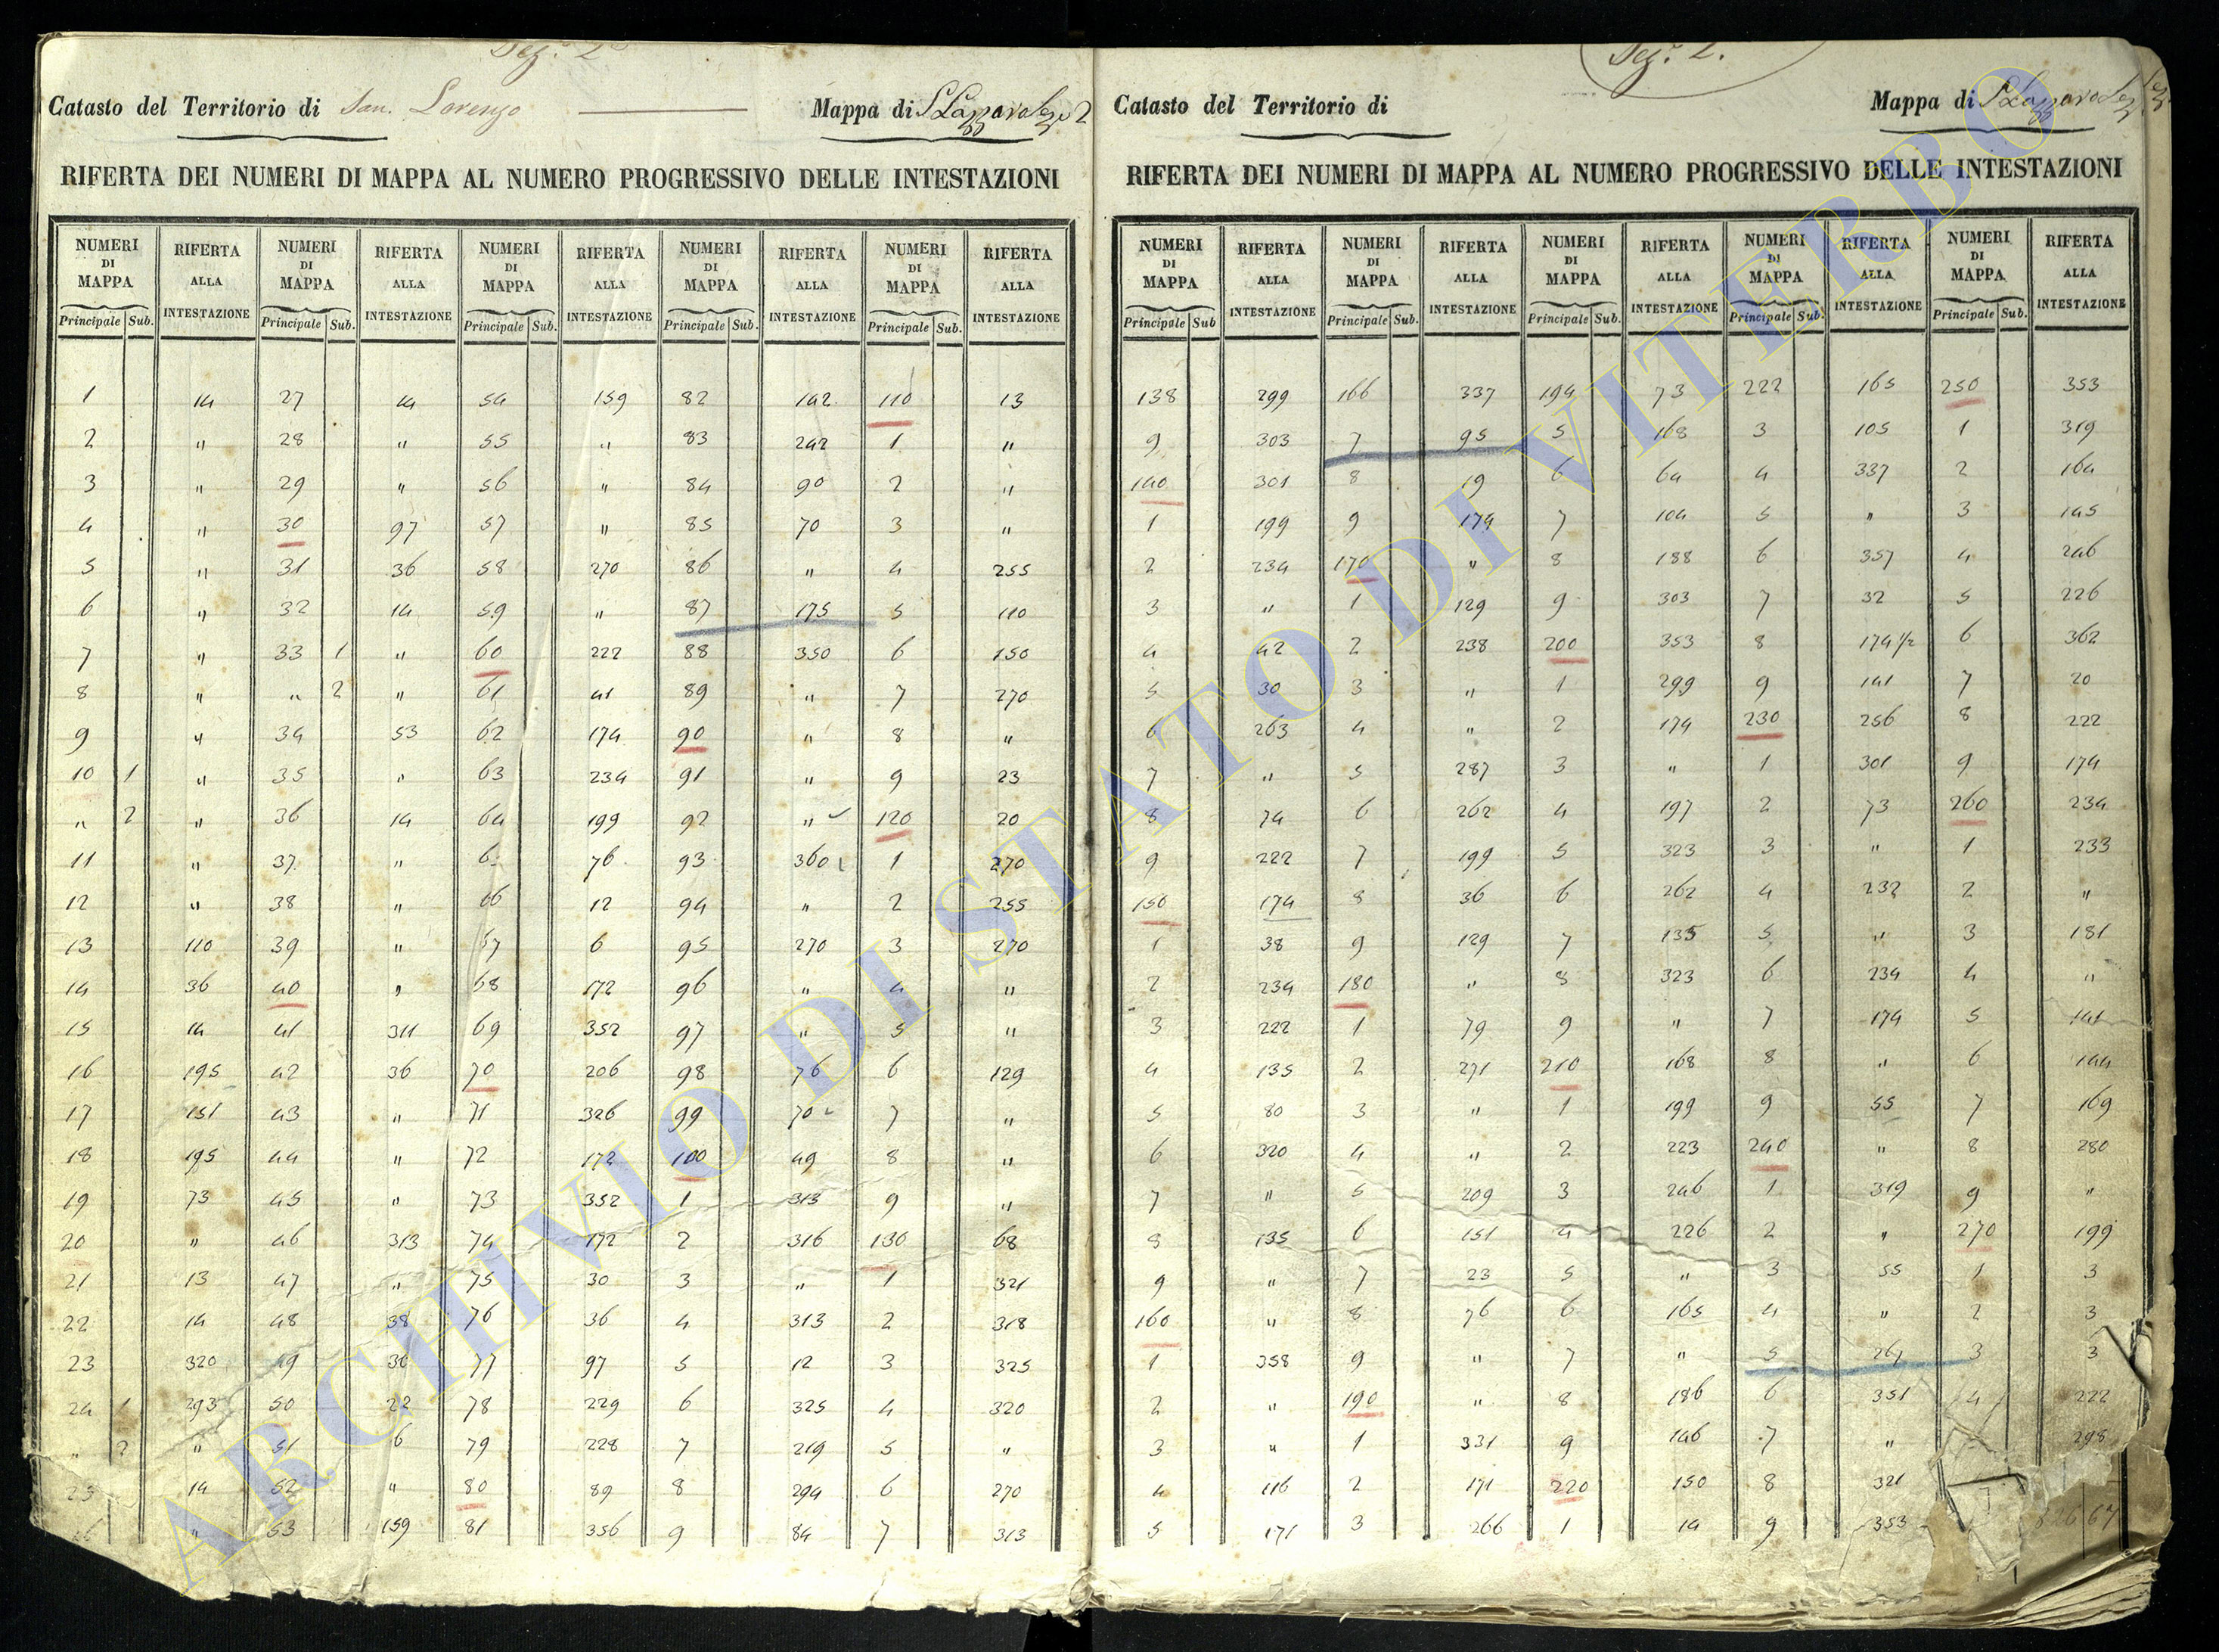 Sez.e 2
Catasto del Territorio di San. Lorenzo Mappa di S Lazzaro Sez 2
RIFERTA DEI NUMERI DI MAPPA AL NUMERO PROGRESSIVO DELLE INTESTAZIONI
NUMERI RIFERTA NUMERI RIFERTA NUMERI RIFERTA NUMERI RIFERTA NUMERI RIFERTA
DI ALLA DI ALLA DI ALLA DI ALLA DI ALLA
MAPPA INTESTAZIONE MAPPA INTESTAZIONE MAPPA INTESTAZIONE MAPPA INTESTAZIONE MAPPA INTESTAZIONE
Principale Sub. Principale Sub. Principale Sub. Principale Sub. Principale Sub.
1 14 27 14 54 159 82 142 110 13
2 " 28 " 55 " 83 242 1 "
3 " 29 " 56 " 84 90 2 "
4 " 30 97 57 " 85 70 3 "
5 " 31 36 58 270 86 " 4 255
6 " 32 14 59 " 87 175 5 110
7 " 33 1 " 60 222 88 350 6 150
8 " " 2 " 61 41 89 " 7 270
9 " 34 53 62 174 90 " 8 "
10 1 " 35 " 63 234 91 " 9 23
" 2 " 36 14 64 199 92 " 120 20
11 " 37 " 6 76 93 360 1 270
12 " 38 " 66 12 94 " 2 255
13 110 39 " 67 6 95 270 3 270
14 36 40 " 68 172 96 " 4 "
15 14 41 311 69 352 97 " 5 "
16 195 42 36 70 206 98 76 6 129
17 151 43 " 71 326 99 70 7 "
18 195 44 " 72 172 100 49 8 "
19 73 45 " 73 352 1 313 9 "
20 " 46 313 74 172 2 316 130 68
21 13 47 " 75 30 3 " 1 321
22 14 48 38 76 36 4 313 2 318
23 320 49 36 77 97 5 12 3 325
24 1 293 50 22 78 229 6 325 4 320
" 2 " 51 6 79 228 7 219 5 "
25 14 52 " 80 89 8 294 6 270
" 53 159 81 356 9 84 7 313
Sez.e 2.
Catasto del Territorio di Mappa di S Lazzaro Sez
RIFERTA DEI NUMERI DI MAPPA AL NUMERO PROGRESSIVO DELLE INTESTAZIONI
NUMERI RIFERTA NUMERI RIFERTA NUMERI RIFERTA NUMERI RIFERTA NUMERI RIFERTA
DI ALLA DI ALLA DI ALLA DI ALLA DI ALLA
MAPPA INTESTAZIONE MAPPA INTESTAZIONE MAPPA INTESTAZIONE MAPPA INTESTAZIONE MAPPA INTESTAZIONE
Principale Sub Principale Sub. Principale Sub. Principale Sub. Principale Sub.
138 299 166 337 194 73 222 165 250 353
9 303 7 95 5 168 3 105 1 319
140 301 8 19 6 64 4 337 2 164
1 199 9 174 7 104 5 " 3 145
2 234 170 " 8 188 6 357 4 246
3 " 1 129 9 303 7 32 5 226
4 42 2 238 200 353 8 174 1/2 6 362
5 30 3 " 1 299 9 141 7 20
6 263 4 " 2 174 230 256 8 222
7 " 5 287 3 " 1 301 9 174
8 74 6 262 4 197 2 73 260 234
9 222 7 199 5 323 3 " 1 233
150 174 8 36 6 262 4 232 2 "
1 38 9 129 7 135 5 " 3 181
2 234 180 " 8 323 6 234 4 "
3 222 1 79 9 " 7 174 5 141
4 135 2 271 210 168 8 " 6 144
5 80 3 " 1 199 9 55 7 169
6 320 4 " 2 223 240 " 8 280
7 " 5 209 3 246 1 319 9 "
8 135 6 151 4 226 2 " 270 199
9 " 7 23 5 " 3 55 1 3
160 " 8 76 6 165 4 " 2 3
1 358 9 " 7 " 5 261 3 3
2 " 190 " 8 186 6 351 4 222
3 " 1 331 9 146 7 " 298
4 116 2 171 220 150 8 321
5 171 3 266 1 14 9 353 67
ARCHIVIO DI STATO DI VITERBO